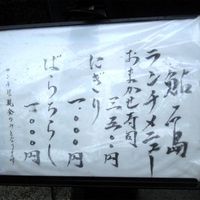 鮨 石島
ランチメニュー
おまかせ寿司
三、三〇〇円
にぎり
一、〇〇〇円
ばらちらし
一、〇〇〇円